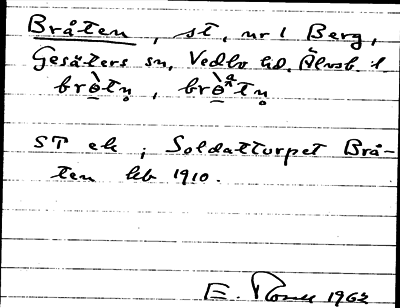 Bråten, st, nr 1 Berg,
Gesäters sn, Vedbo hd, Älvsb. l
brò̱tn̥, brò̱ᵃtn̥
ST ek; Soldattorpet Brå-
ten kb 1910.
E. 1962